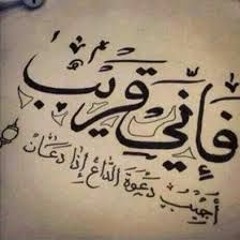 فَإِنِّي قَرِيبٌ
أُجِيبُ دَعْوَةَ الدَّاعِ إِذَا دَعَانِ